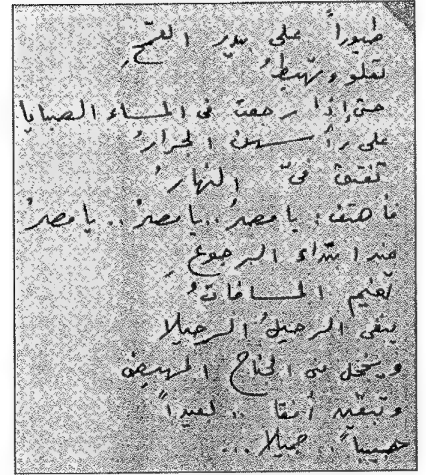 طيوراً على بيدر القمحِ
تعلو وتهبطُ
حتى إذا رجعت في المساء الصبايا
على رأسهن الجرارُ
تفتق فيّ النهارُ
فأهتف: يا مصرُ.. يا مصرُ.. يا مصرُ
عند ابتداء الرجوعِ
تغيم المسافاتُ
ينفي الرحيلُ الرحيلا
ويثقل من الجناح المهيض
وتبقين أفقا .. بعيداً
حبيباً.. جميلا...